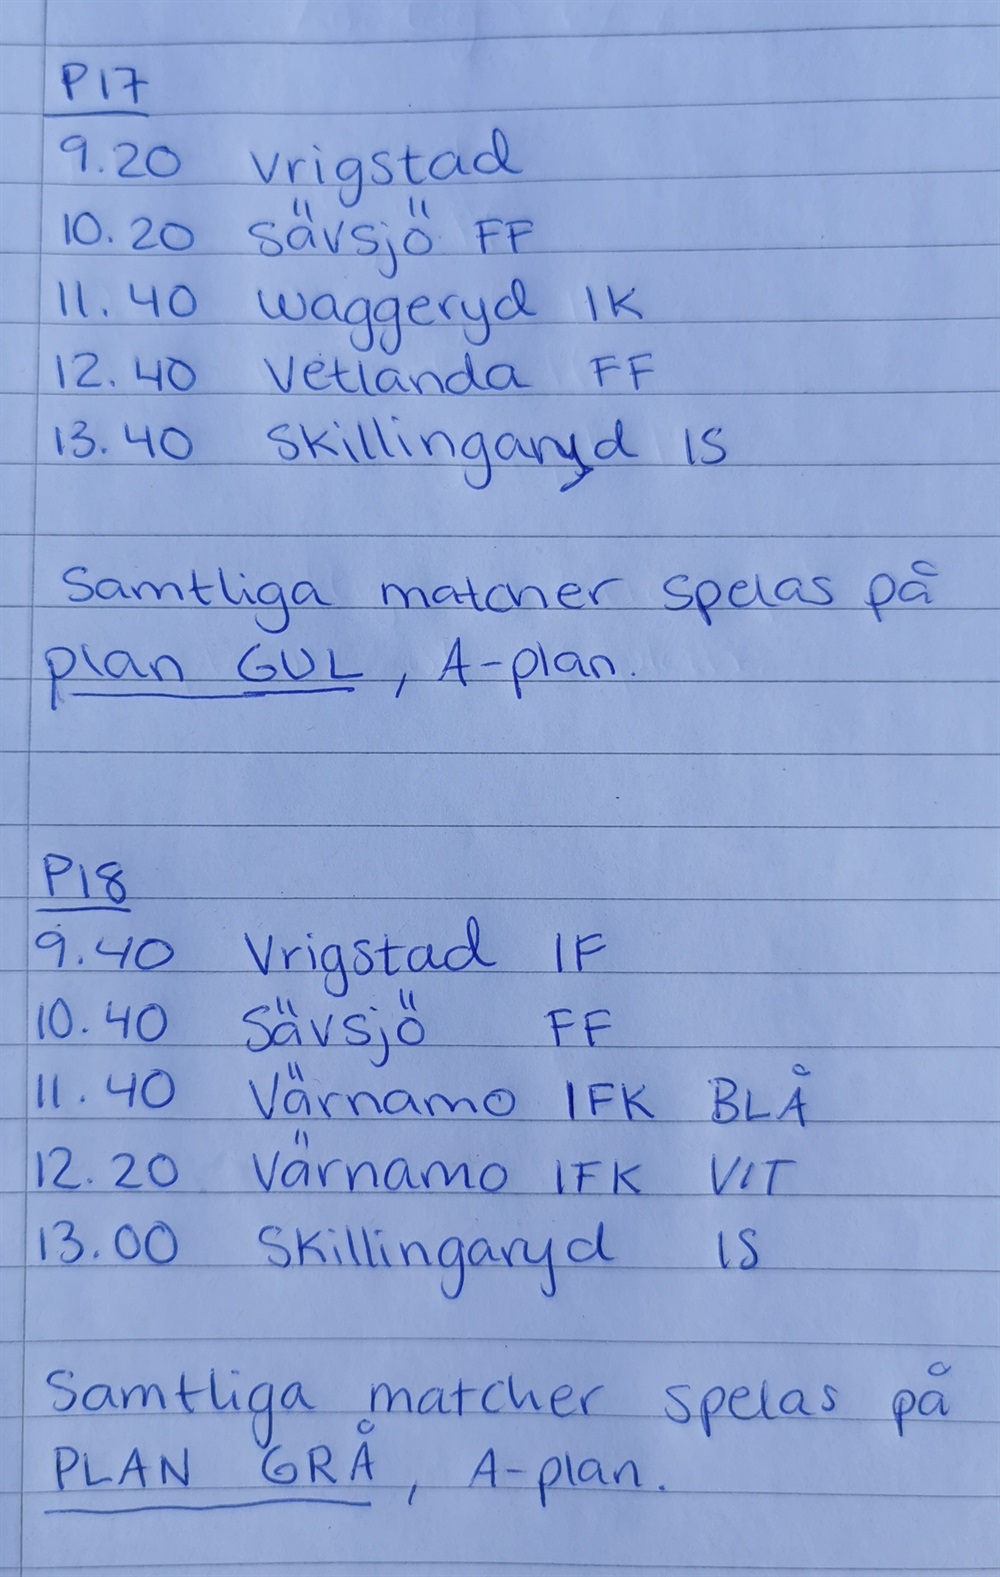 P17
9.20 Vrigstad
10.20 Sävsjö FF
11.40 Waggeryd IK
12.40 Vetlanda FF
13.40 Skillingaryd IS
Samtliga matcher spelas på
plan GUL, A-plan.
P18
9.40 Vrigstad IF
10.40 Sävsjö FF
11.40 Värnamo IFK BLÅ
12.20 Värnamo IFK VIT
13.00 Skillingaryd IS
Samtliga matcher spelas på
PLAN GRÅ, A-plan.